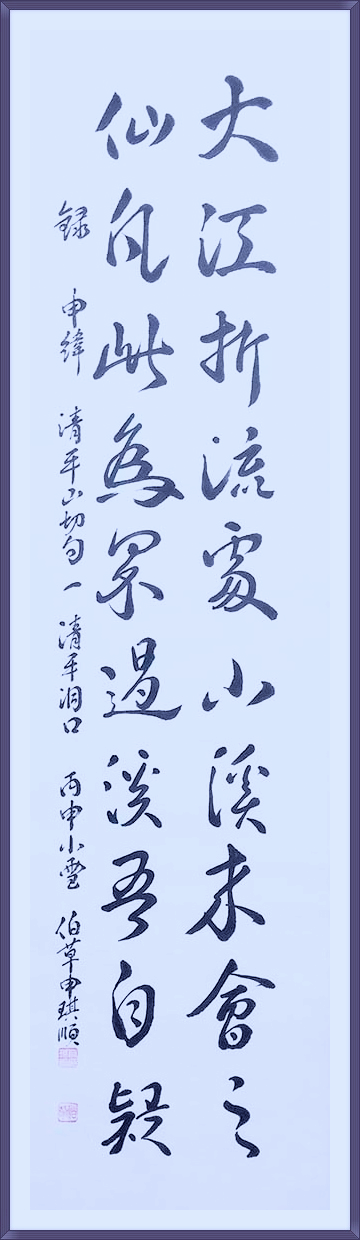 大江折流處小溪来會之
仙凡此為界過溪吾自疑
錄 申緯 清平山切句一 清平洞口 丙申小雪 伯草申琪順